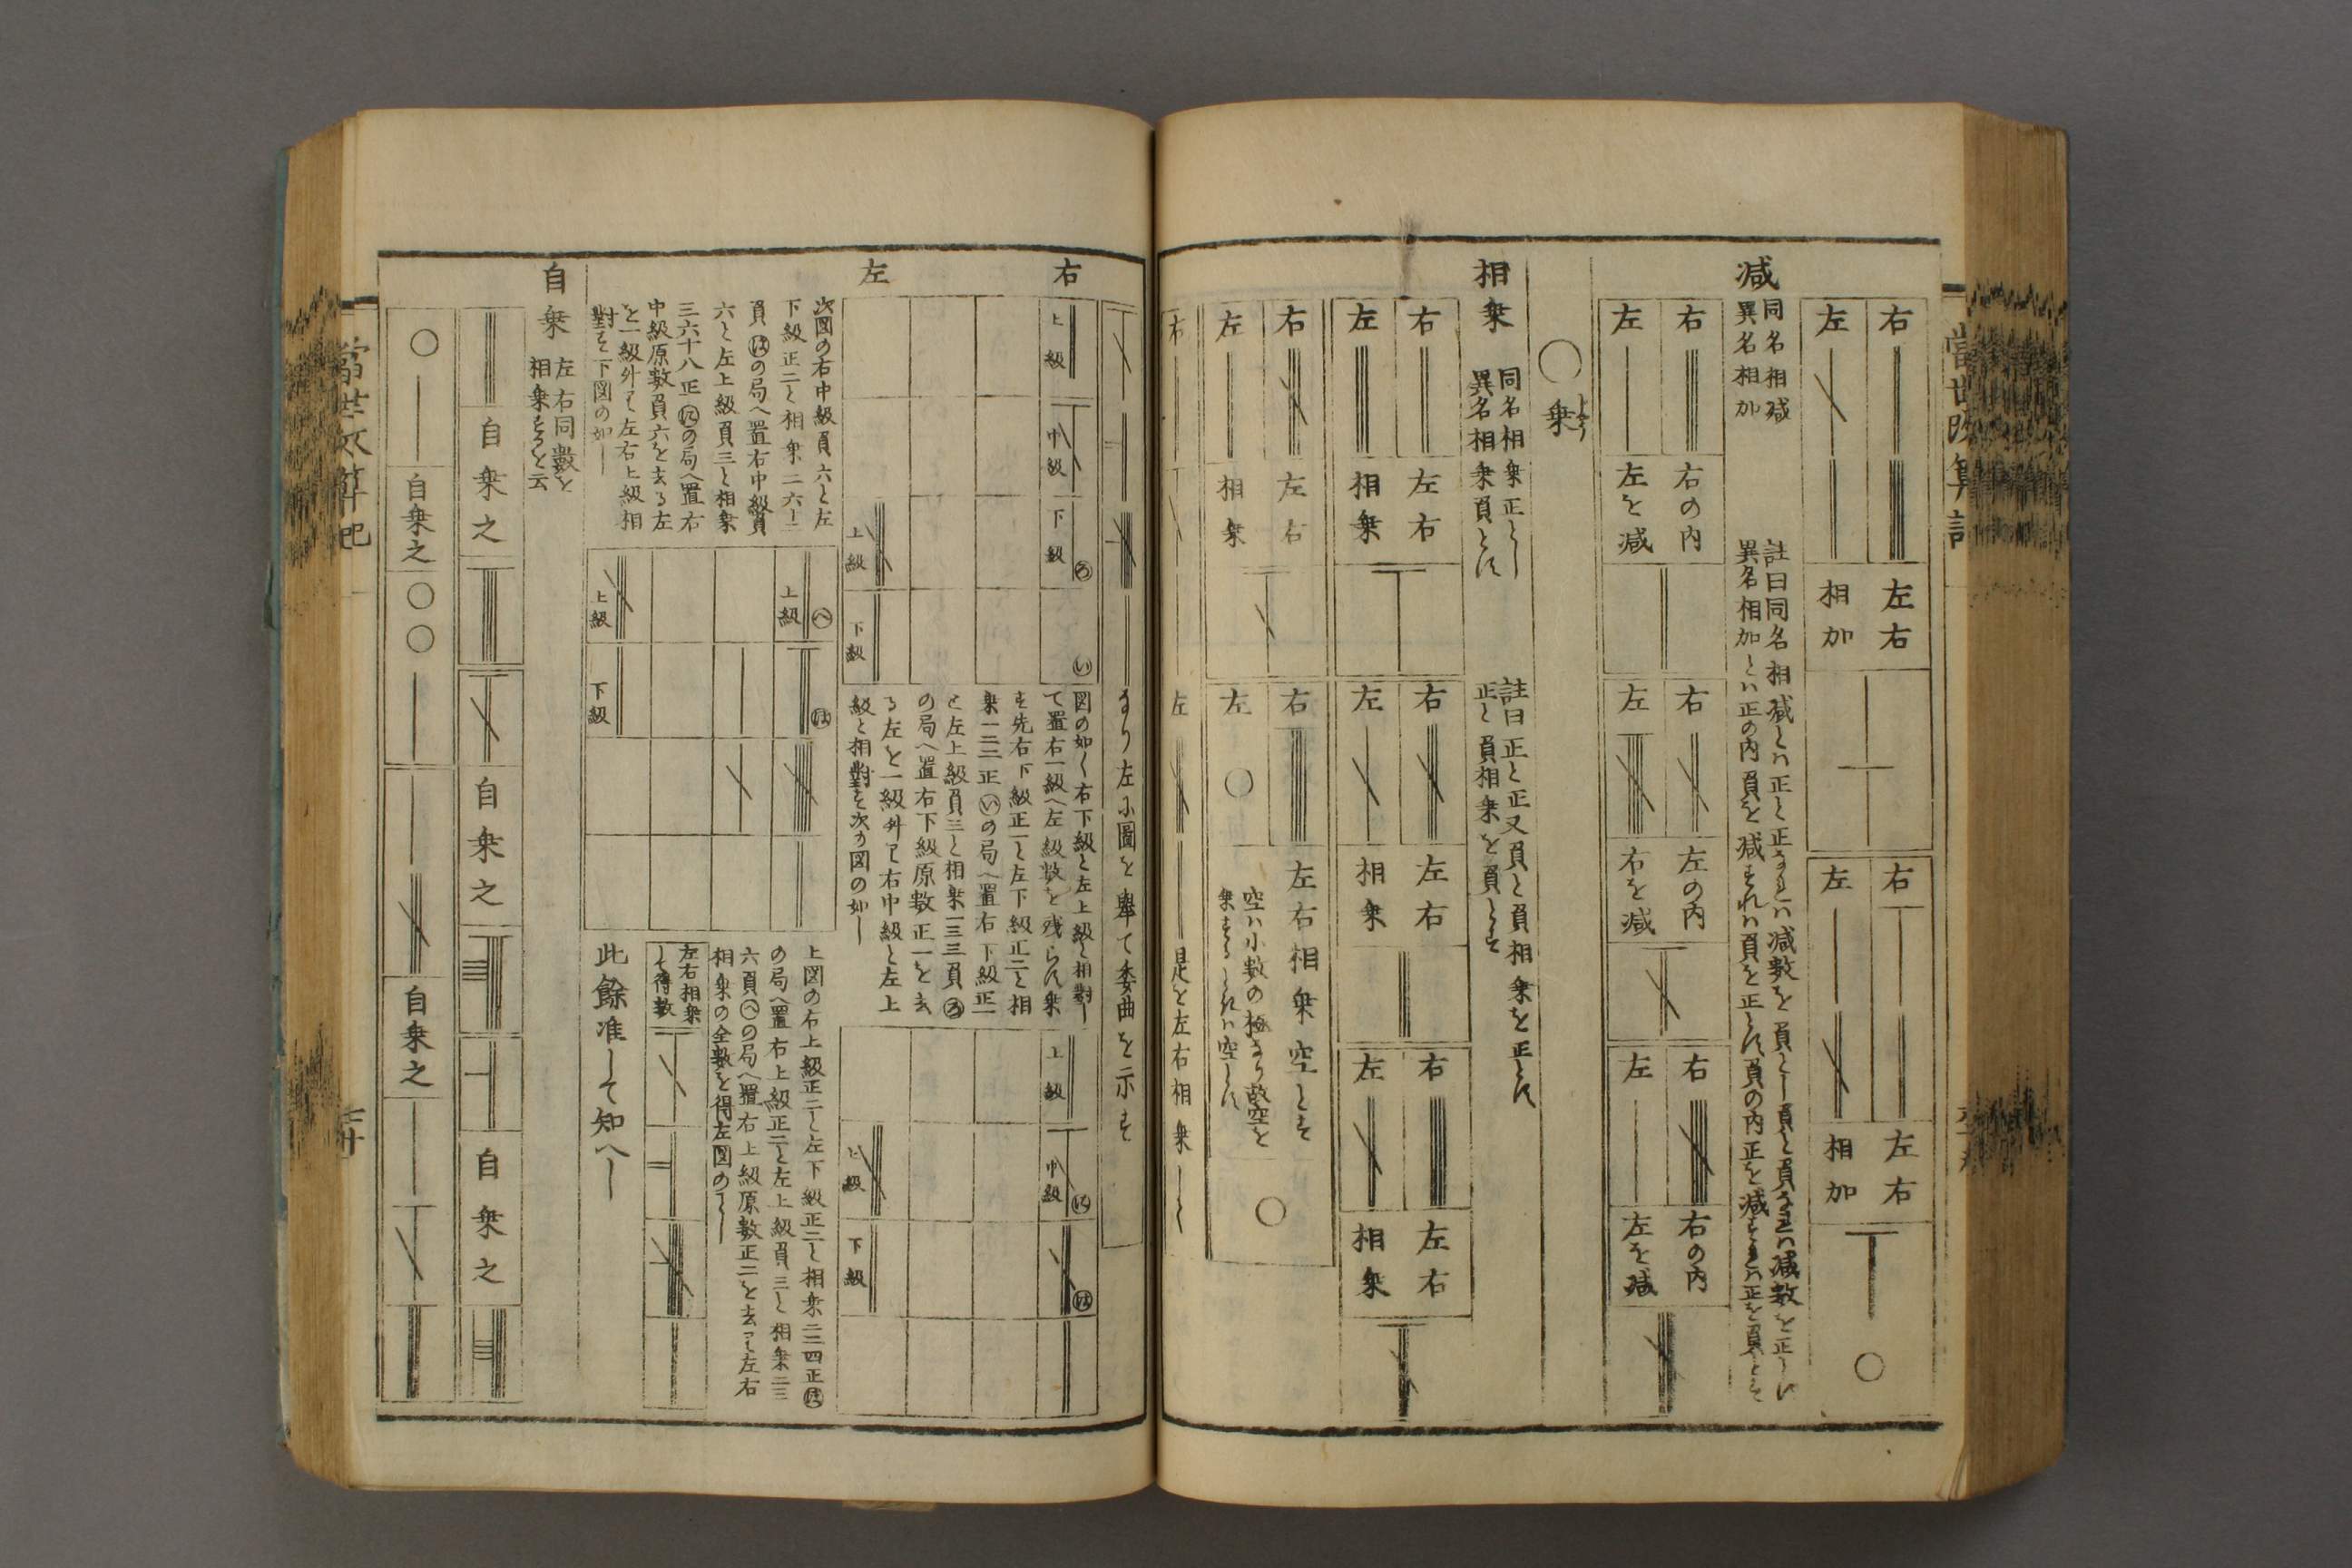 右
左
左右
相加
右
左
左右
相加
○
減
同名相減
異名相加
註曰同名相減とハ正と正なれハ減数を負とし負と負なれハ減数を正とし
異名相加とハ正の内負を減すれハ負を正とし負の内正を減すれハ正を負とす
右
左
右の内
左を減
右
左
左の内
右を減
右
左
右の内
左を減
○乗
相乗
同名相乗正とし
異名相乗負とす
註曰正と正又負と負相乗を正とし
正と負相乗を負とす
右
左
左右
相乗
右
左
左右
相乗
右
左
左右
相乗
右
左
左右
相乗
右
左
左右相乗空とす
空ハ小数の極なり故空を
乗するとれハ空とす
○
右
左
是を左右相乗
なり左に圖を舉て委曲を示す
右
左
上級
中級
下級
ろ
い
上級
下級
図の如く右下級と左上級と相對し
て置右一級へ左級数を残らす乗
す先右下級正一と左下級正二と相
乗一二二正いの局へ置右下級正一
と左上級負三と相乗一三三負ろ
の局へ置右下級原数正一を去
る左を一級外て右中級と左上
級と相對を次の図の如し
上級
中級
に
は
上級
下級
次図の右中級負六と左
下級正二と相乗二六十二
負はの局へ置右中級負
六と左上級負三と相乗
三六十八正にの局へ置右
中級原数負六を去る左
を一級外て左右上級相
對を下図の如し
上級
へ
ほ
上級
下級
上図の右上級正二と左下級正二と相乗二二四正ほ
の局へ置右上級正二と左上級負三と相乗二三
六負への局へ置右上級原数正二を去て左右
相乗の全数を得左図の
左右相乗
して得数
此餘准して知へし
自乗
左右同數を
相乗するを云
自乗之
自乗之
自乗之
○
自乗之
○○
自乗之